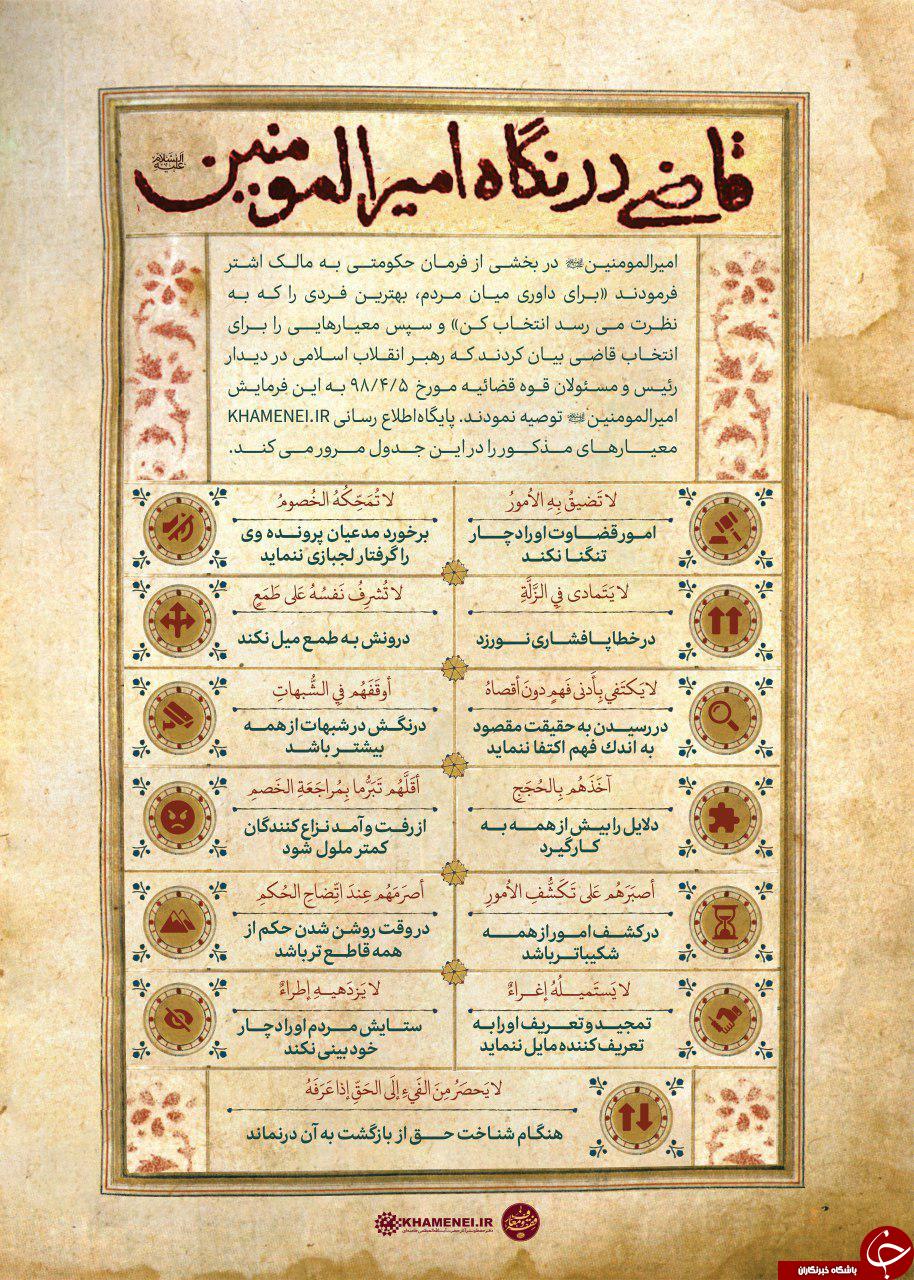 قاضی در نگاه امیرالمومنین علیه السلام
امیرالمومنین علیه السلام در بخشی از فرمان حکومتی به مالک اشتر
فرمودند «برای داوری میان مردم، بهترین فردی را که به
نظرت می رسد انتخاب کن» و سپس معیارهایی را برای
انتخاب قاضی بیان کردند که رهبر انقلاب اسلامی در دیدار
رئیس و مسئولان قوه قضائیه مورخ ۹۸/۴/۵ به این فرمایش
امیرالمومنین علیه السلام توصیه نمودند. پایگاه اطلاع رسانی KHAMENEI.IR
معیارهای مذکور را در این جدول مرور می کند.
لا تَضيقُ بِهِ الأمورُ
امور قضاوت او را دچار
تنگنا نکند
لا تُمَحِّكُهُ الخُصومُ
برخورد مدعیان پرونده وی
را گرفتار لجبازی ننماید
لا يَتَمادى فِي الزَّلَّةِ
در خطا پافشاری نورزد
لا تُشرِفُ نَفسُهُ عَلى طَمَعٍ
درونش به طمع میل نکند
لا يَكتَفي بِأدنى فَهمٍ دونَ أقصاهُ
در رسیدن به حقیقت مقصود
به اندك فهم اکتفا ننماید
أوقَفَهُم فِي الشُّبهاتِ
درنگش در شبهات از همه
بیشتر باشد
آخَذَهُم بِالحُجَجِ
دلایل را بیش از همه به
کار گیرد
أقَلَّهُم تَبَرُّما بِمُراجَعَةِ الخَصمِ
از رفت و آمد نزاع کنندگان
کمتر ملول شود
أصبَرَهُم عَلى تَكَشُّفِ الأمورِ
در کشف امور از همه
شکیباتر باشد
أصرَمَهُم عِندَ اتِّضاحِ الحُكمِ
در وقت روشن شدن حکم از
همه قاطع تر باشد
لا يَستَميلُهُ إغراءٌ
تمجید و تعریف او را به
تعریف کننده مایل ننماید
لا يَزدَهيهِ إطراءٌ
ستایش مردم او را دچار
خودبینی نکند
لا يَحصَرُ مِنَ الفَيءِ إلَى الحَقِّ إذا عَرَفَهُ
هنگام شناخت حق از بازگشت به آن درنماند
KHAMENEI.IR
فقه و معارف
باشگاه خبرنگاران